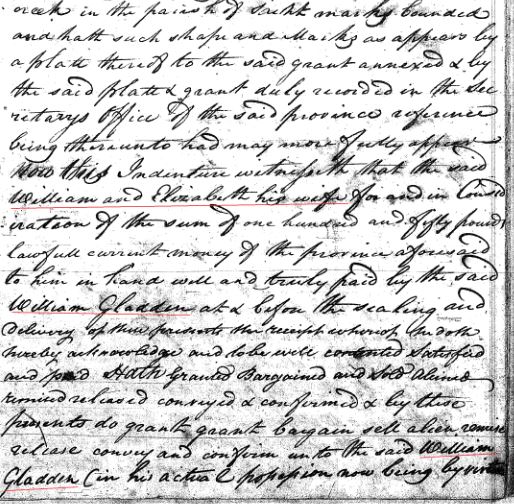 creek in the parish of Saint marks bounded
and hath such shape and Marks as appears by
a plate thereof to the said grant annexed & by
the said plate & grant duly recorded in the Sec
retarys Office of the said province reference
being thereunto had may more fully appear
Now this Indenture witnesseth that the said
William and Elizabeth his wife for and in Consid
eration of the sum of one hundred and fifty pounds
lawfull current money of the province aforesaid
to him in hand well and truly paid by the said
William Gladden at & before the sealing and
Delivery of these presents the receipt whereof he doth
hereby acknowledge and to be well contented Satisfied
and paid Hath Granted Bargained and Sold Aliened
remised released conveyed & confirmed & by these
presents do grant grant bargain sell alien remise
release convey and confirm unto the said William
Gladden (in his actual possession now being by virtue